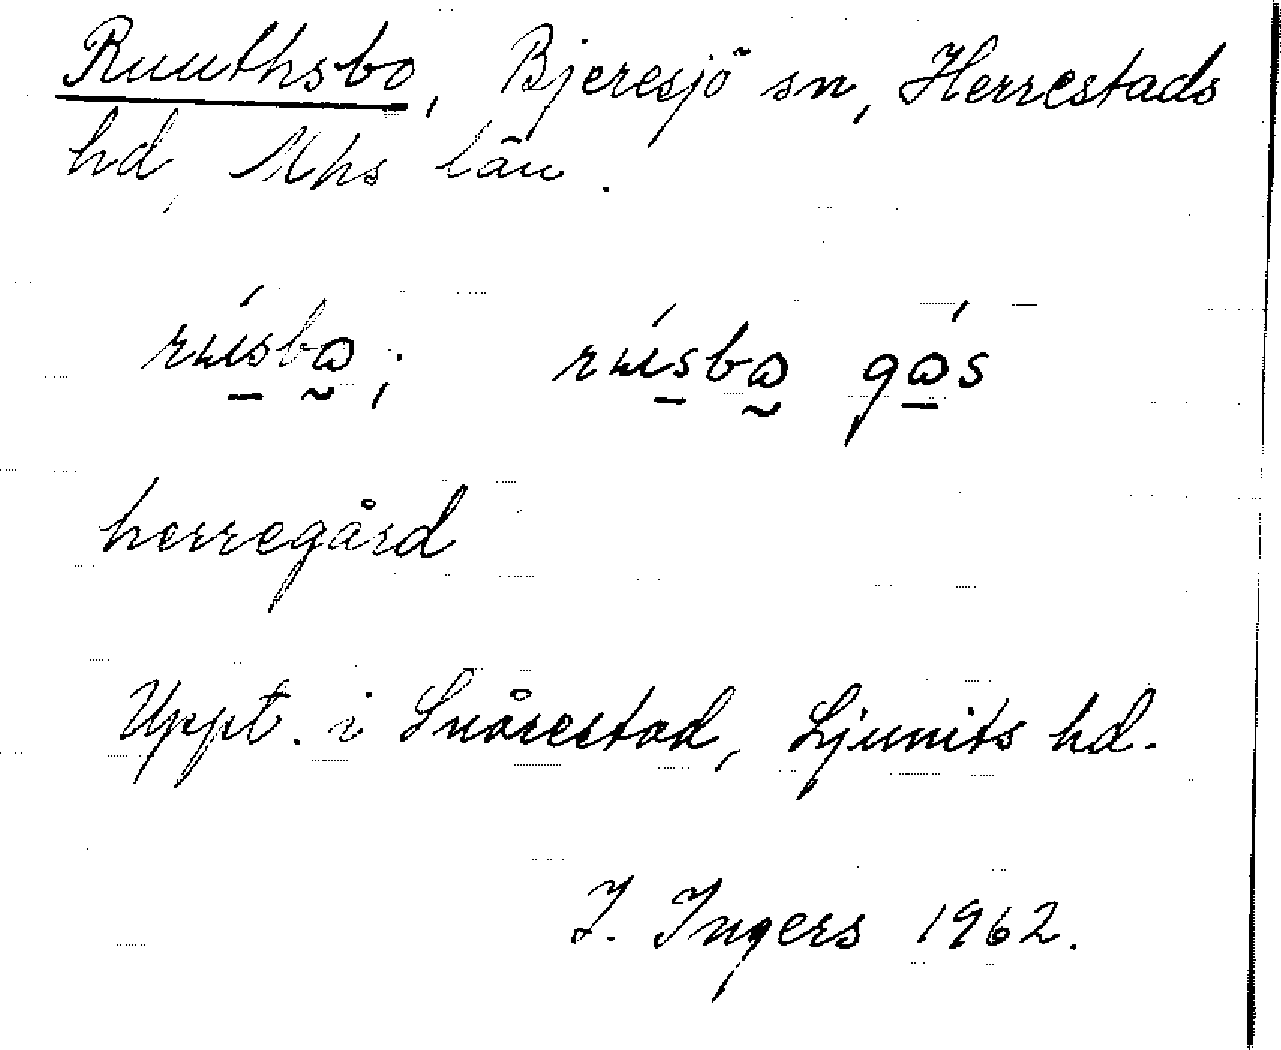 Ruuthsbo, Bjeresjö sn, Herrestads
hd, Mhs län.
herregård
Uppt. i Snårestad, Ljunits hd.
I. Ingers 1962.